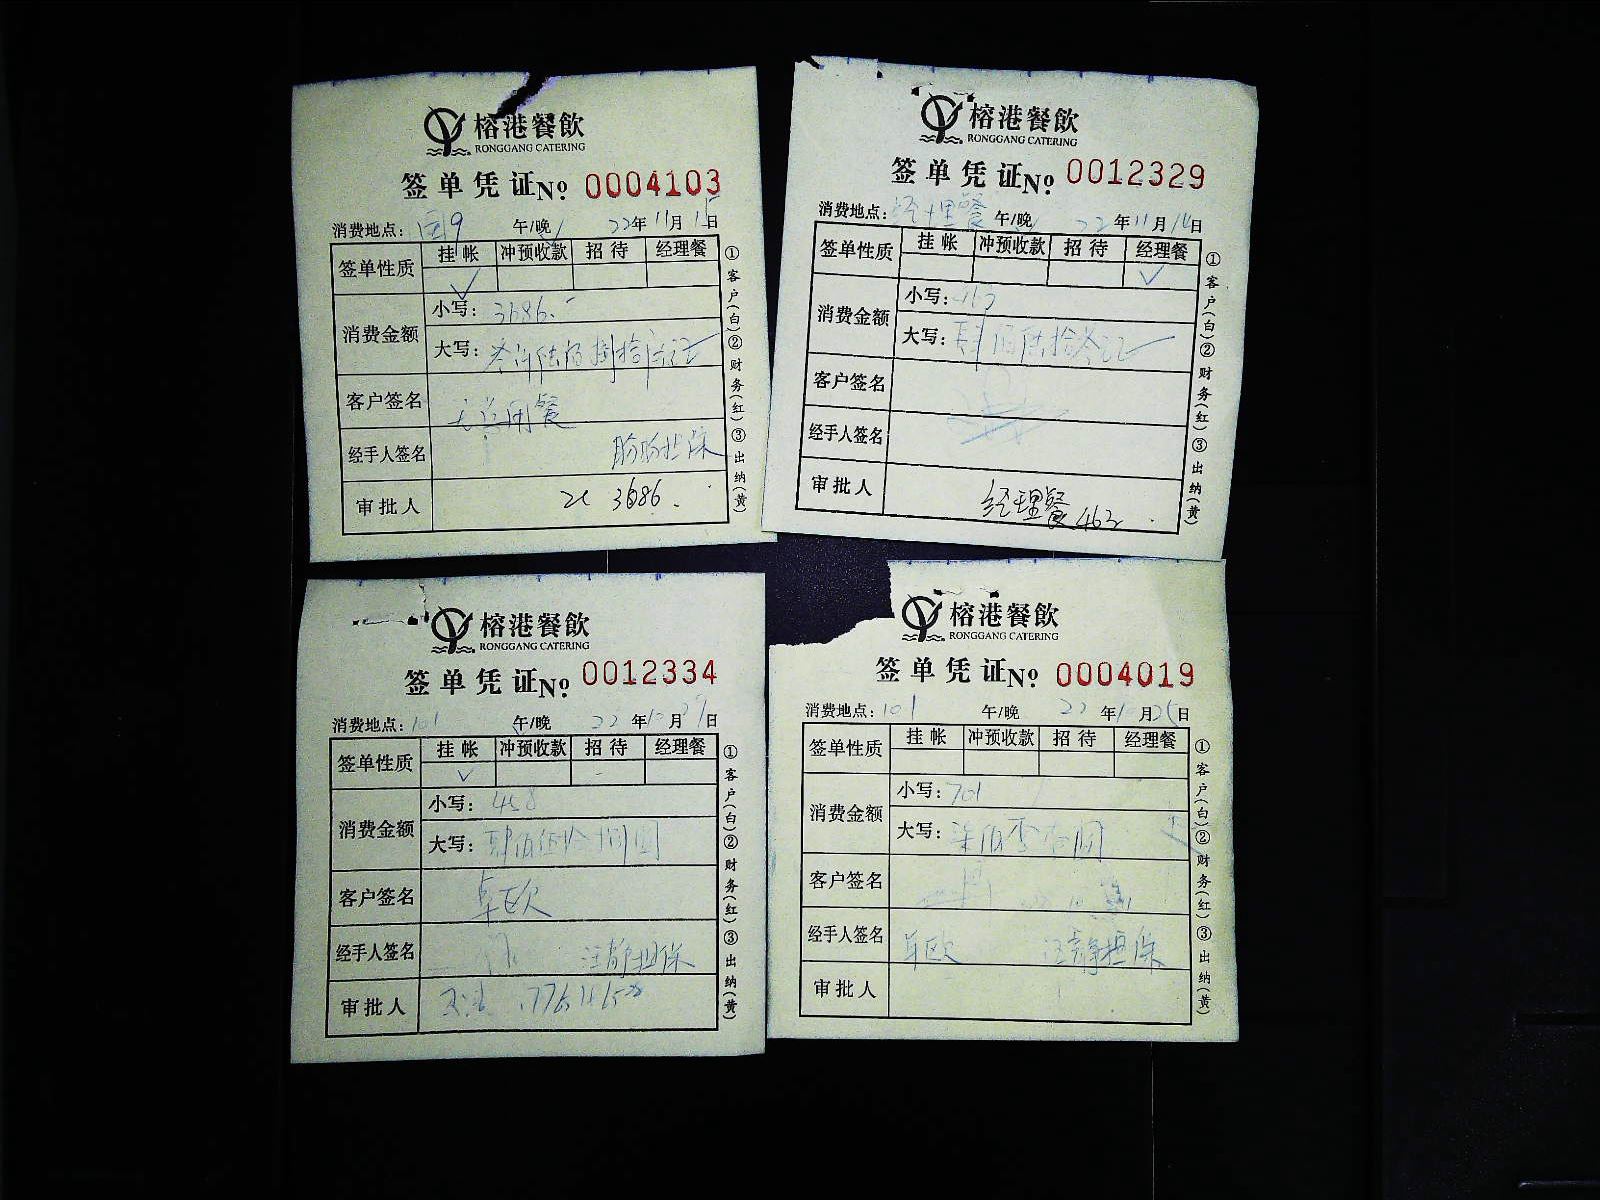 榕港餐飲
RONGGANG CATERING
签单凭证№ 0004103
消费地点: 午/晚 22年11月15日
签单性质 挂帐 冲预收款 招待 经理餐
✓
消费金额 小写: 3686.-
大写: 叁仟陆佰捌拾陆元正
客户签名 用餐
经手人签名 盼盼担保
审批人 3686.
①客户(白)②财务(红)③出纳(黄)
榕港餐飲
RONGGANG CATERING
签单凭证№ 0012329
消费地点: 经理餐 午/晚 22年11月14日
签单性质 挂帐 冲预收款 招待 经理餐
✓
消费金额 小写: 463
大写: 肆佰陆拾叁元正
客户签名
经手人签名
审批人 经理餐 463
①客户(白)②财务(红)③出纳(黄)
榕港餐飲
RONGGANG CATERING
签单凭证№ 0012334
消费地点: 101 午/晚 22年10月 日
签单性质 挂帐 冲预收款 招待 经理餐
✓
消费金额 小写: 458
大写: 肆佰伍拾捌圆
客户签名 卓欧
经手人签名 汪静担保
审批人
①客户(白)②财务(红)③出纳(黄)
榕港餐飲
RONGGANG CATERING
签单凭证№ 0004019
消费地点: 101 午/晚 22年10月 日
签单性质 挂帐 冲预收款 招待 经理餐
消费金额 小写: 701
大写: 柒佰零壹圆
客户签名
经手人签名 卓欧 汪静担保
审批人
①客户(白)②财务(红)③出纳(黄)